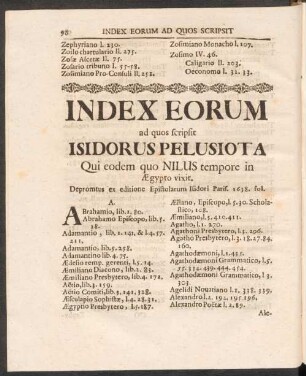 90 INDEX EORUM AD QUOS SCRIPSIT
Zephyriano l. 230.
Zoilo chartulario II. 275.
Zolæ Ascetæ II. 75.
Zosario tribuno I. 55-58.
Zosimiano Pro-Consuli II. 252.
Zosimiano Monacho l. 107.
Zosimo IV. 46.
Caligario II. 203.
Oeconomo I. 32. 33.
INDEX EORUM
ad quos scripsit
ISIDORUS PELUSIOTA
Qui eodem quo NILUS tempore in
Ægypto vixit.
Depromtus ex editione Epistolarum Isidori Paris. 1638. fol.
A.
Abrahamio, lib.2. 80.
Abrahamo Episcopo, lib.5.
38.
Adamantio, lib, 2. 141, & l.4. 57.
211.
Adamantio, lib.5. 258.
Adamantino lib 4. 75.
Ædesio remp. gerenti, l.5. 14.
Æmiliano Diacono, lib.2. 83.
Æmiliano Presbytero, lib.4. 174.
Aërio, lib.4. 159.
Aërio Comiti, lib.3. 142, 328.
Æsculapio Sophistæ, l.4. 28. 31.
Ægyptio Presbytero, l.5. 187.
Æliano, Episcopo, l.5. 30. Schola-
stico, 108.
Æmiliano, l.5. 410. 411.
Agatho, l.1. 270.
Agathoni Presbytero, l.3. 296.
Agatho Presbytero, l.3. 18. 27. 84.
160.
Agathodæmoni, l.1. 435.
Agathodæmoni Grammatico, l.5.
55. 334. 439. 444. 454.
Agathodæmoni Grammatico, l 3.
303
Agelidi Novatiano l.1. 338. 339.
Alexandro l.1. 194. 195. 196.
Alexandro Poëtæ l.2. 89.
Ale-